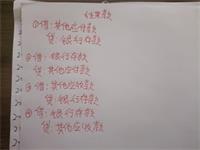 往来款
①借:其他应付款
贷:银行存款
②借:银行存款
贷:其他应付款
③借:其他应收款
贷:银行存款
④借:银行存款
贷:其他应收款